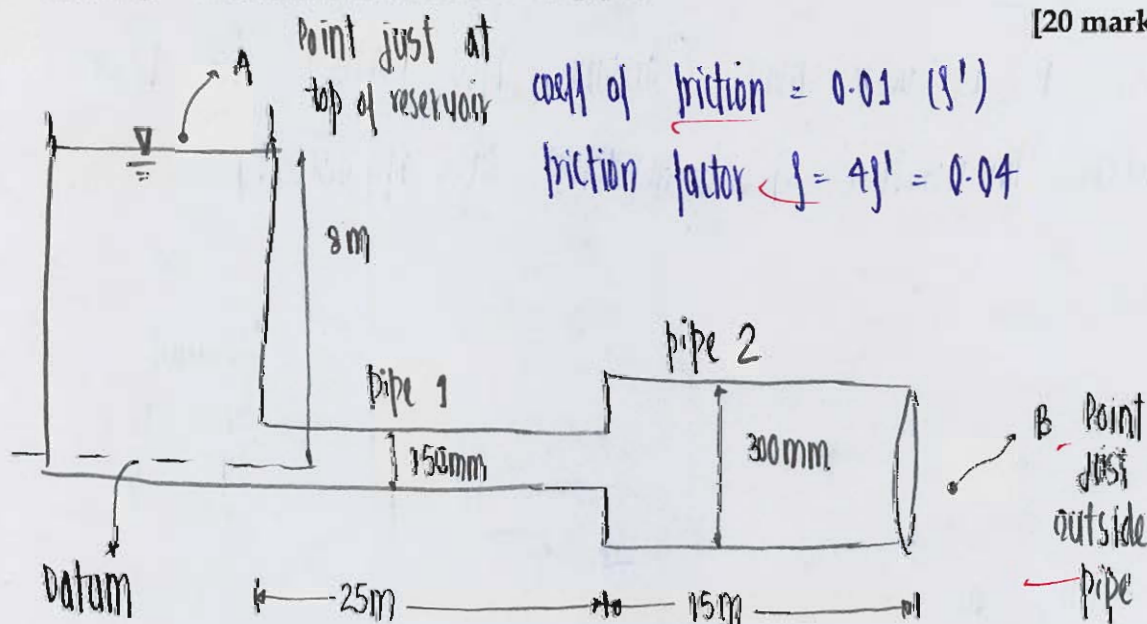 [20 mark
Point just at
top of reservoir
A
coeff of friction = 0.01 (f')
friction factor f = 4f' = 0.04
8m
pipe 1
pipe 2
150mm
300mm
B Point
just
outside
pipe
Datum
25m
15m